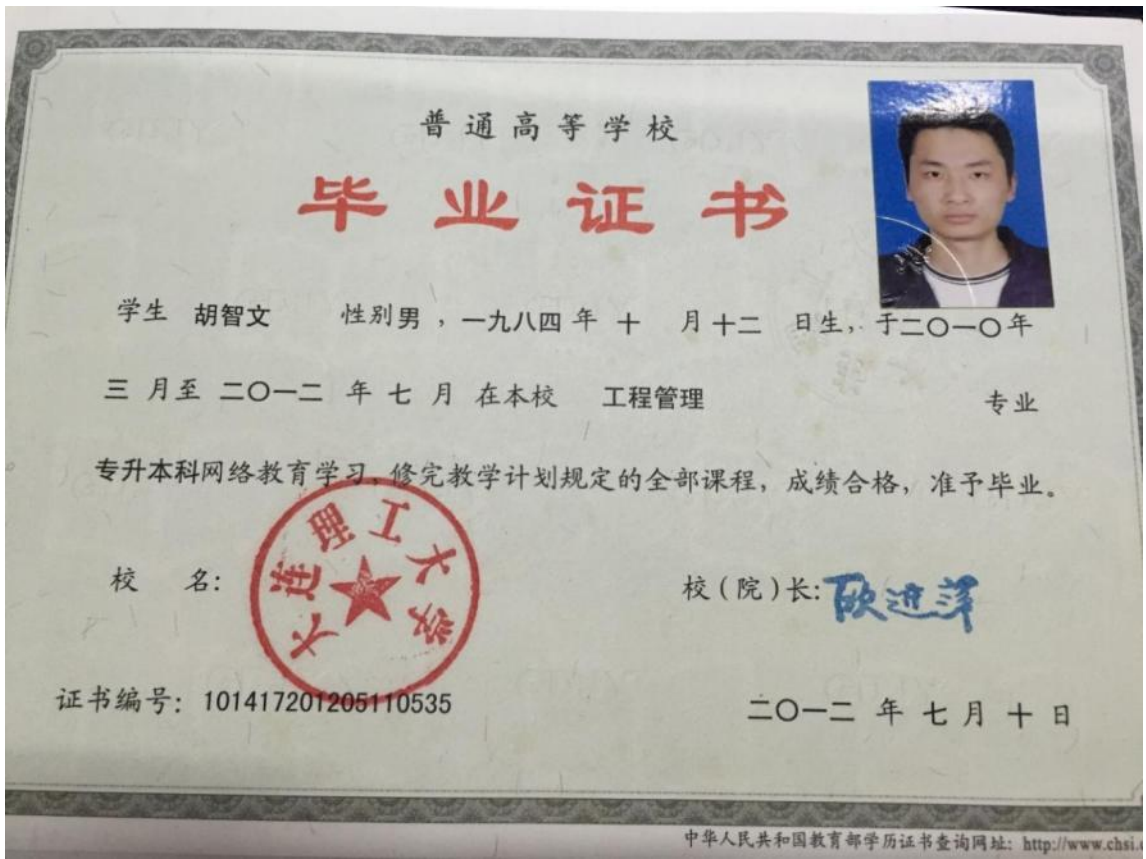 普通高等学校
毕业证书
学生 胡智文 性别男，一九八四年十月十二日生，于二〇一〇年
三月至二〇一二年七月在本校 工程管理 专业
专升本科网络教育学习，修完教学计划规定的全部课程，成绩合格，准予毕业。
校 名：
大连理工大学
校（院）长：欧进萍
证书编号：101417201205110535
二〇一二年七月十日
中华人民共和国教育部学历证书查询网址：http://www.chsi.